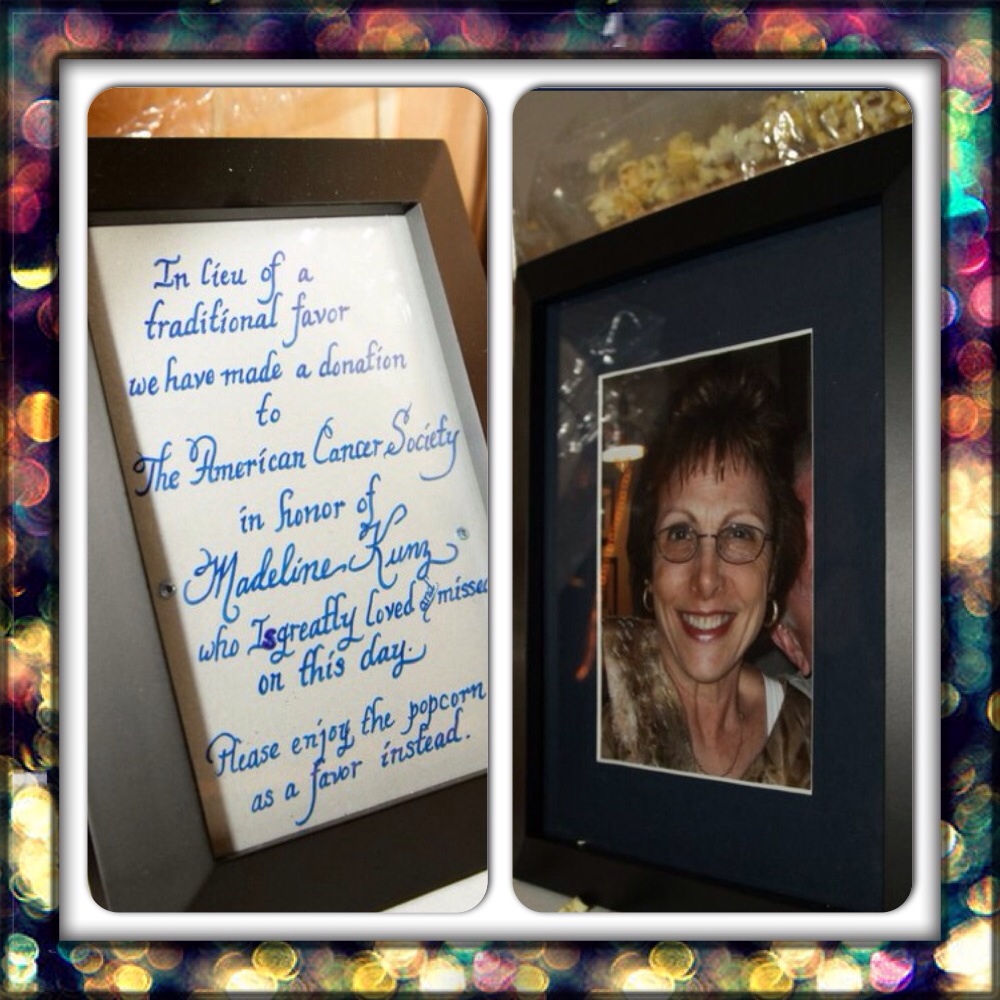 In lieu of a
traditional favor
we have made a donation
to
The American Cancer Society
in honor of
Madeline Kunz
who Is greatly loved and missed
on this day.
Please enjoy the popcorn
as a favor instead.